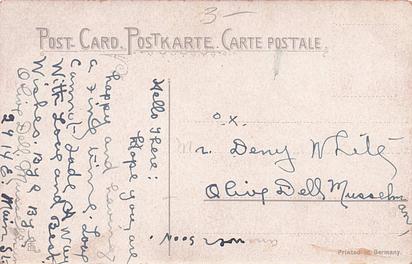 3-
POST-CARD. POSTKARTE. CARTE POSTALE.
Hello There:
Hope you are
happy and having
a fine time.
With Love and Best
Wishes. Bye Bye.
Olive Dell
2414 E. Main St
o.x.
Deny White
Olive Dell Musselman,
Soon.
Printed in Germany.